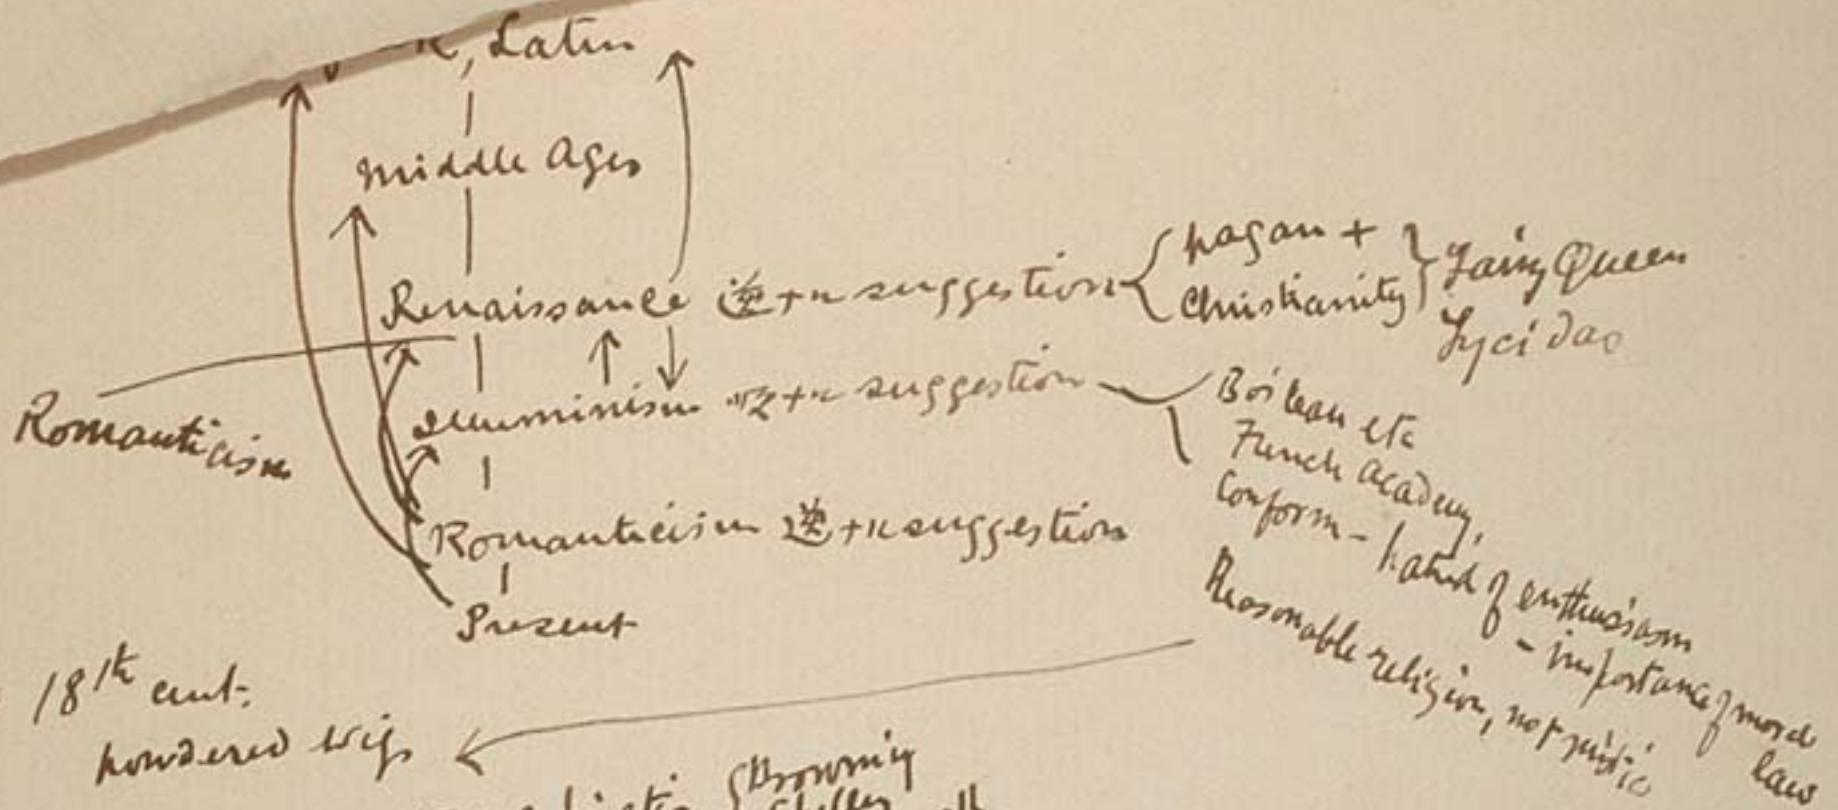 , Latin
Middle Ages
Renaissance 逆+n suggestion
pagan +
Christianity
Fairy Queen
Lycidas
Romanticism
Illuminism +n suggestion
Boileau etc
French Academy,
Conform - hatred of enthusiasm
- importance of moral
law
Reasonable religion, not mystic
Romanticism 逆+n suggestion
Present
18th cent.
powdered wigs
Browning
Shelley